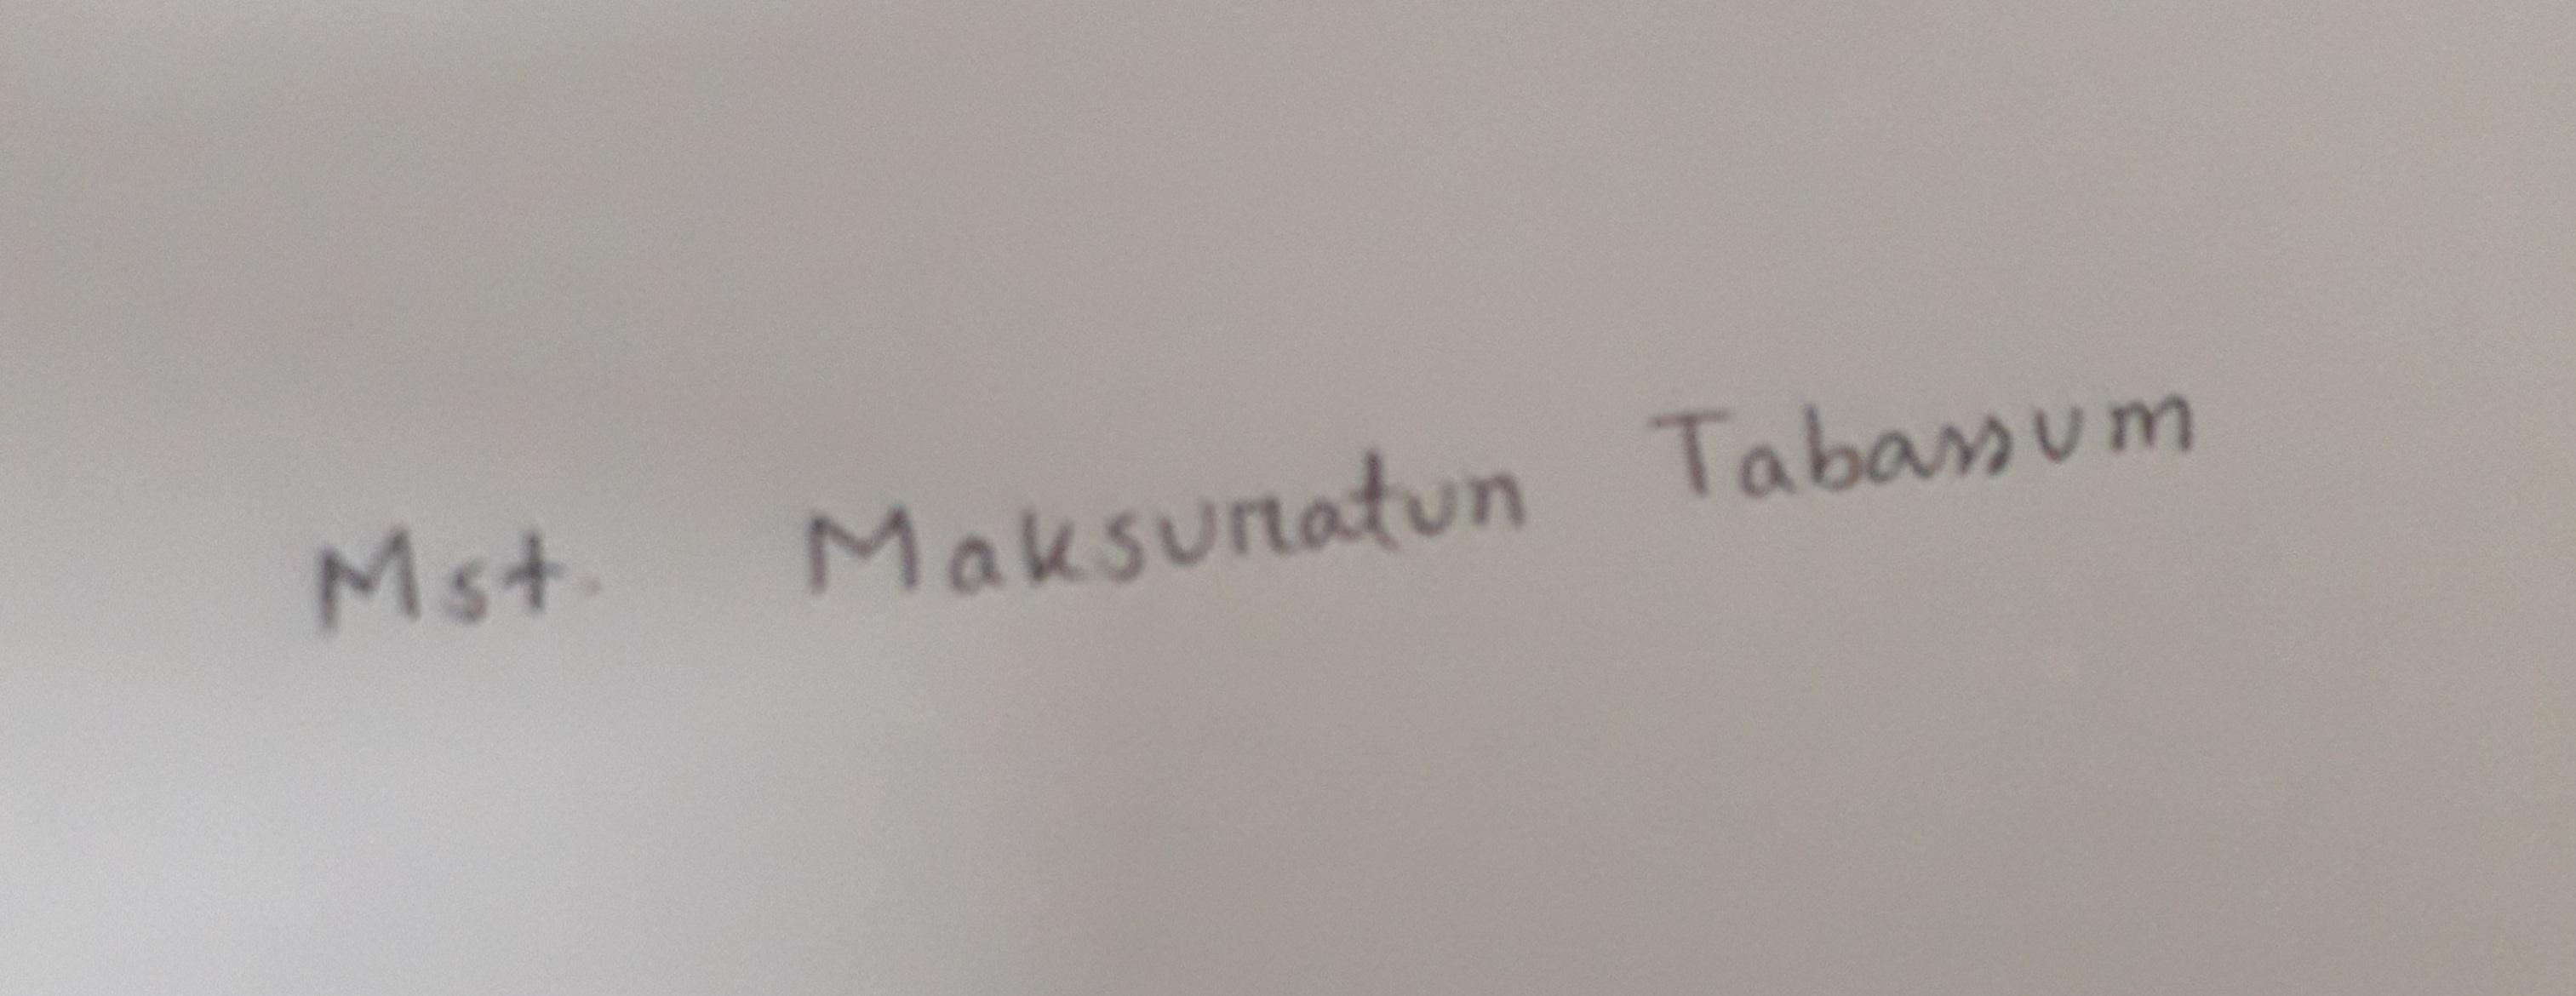 Mst. Maksuratun Tabassum